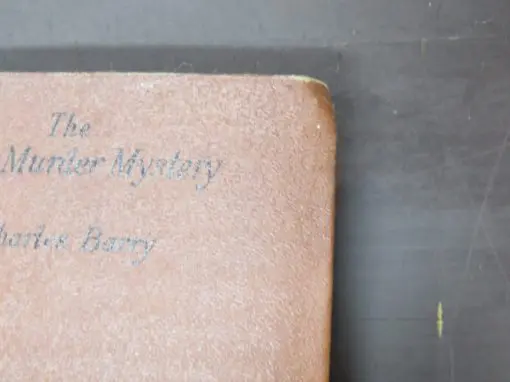 The
Murder Mystery
harles Barry